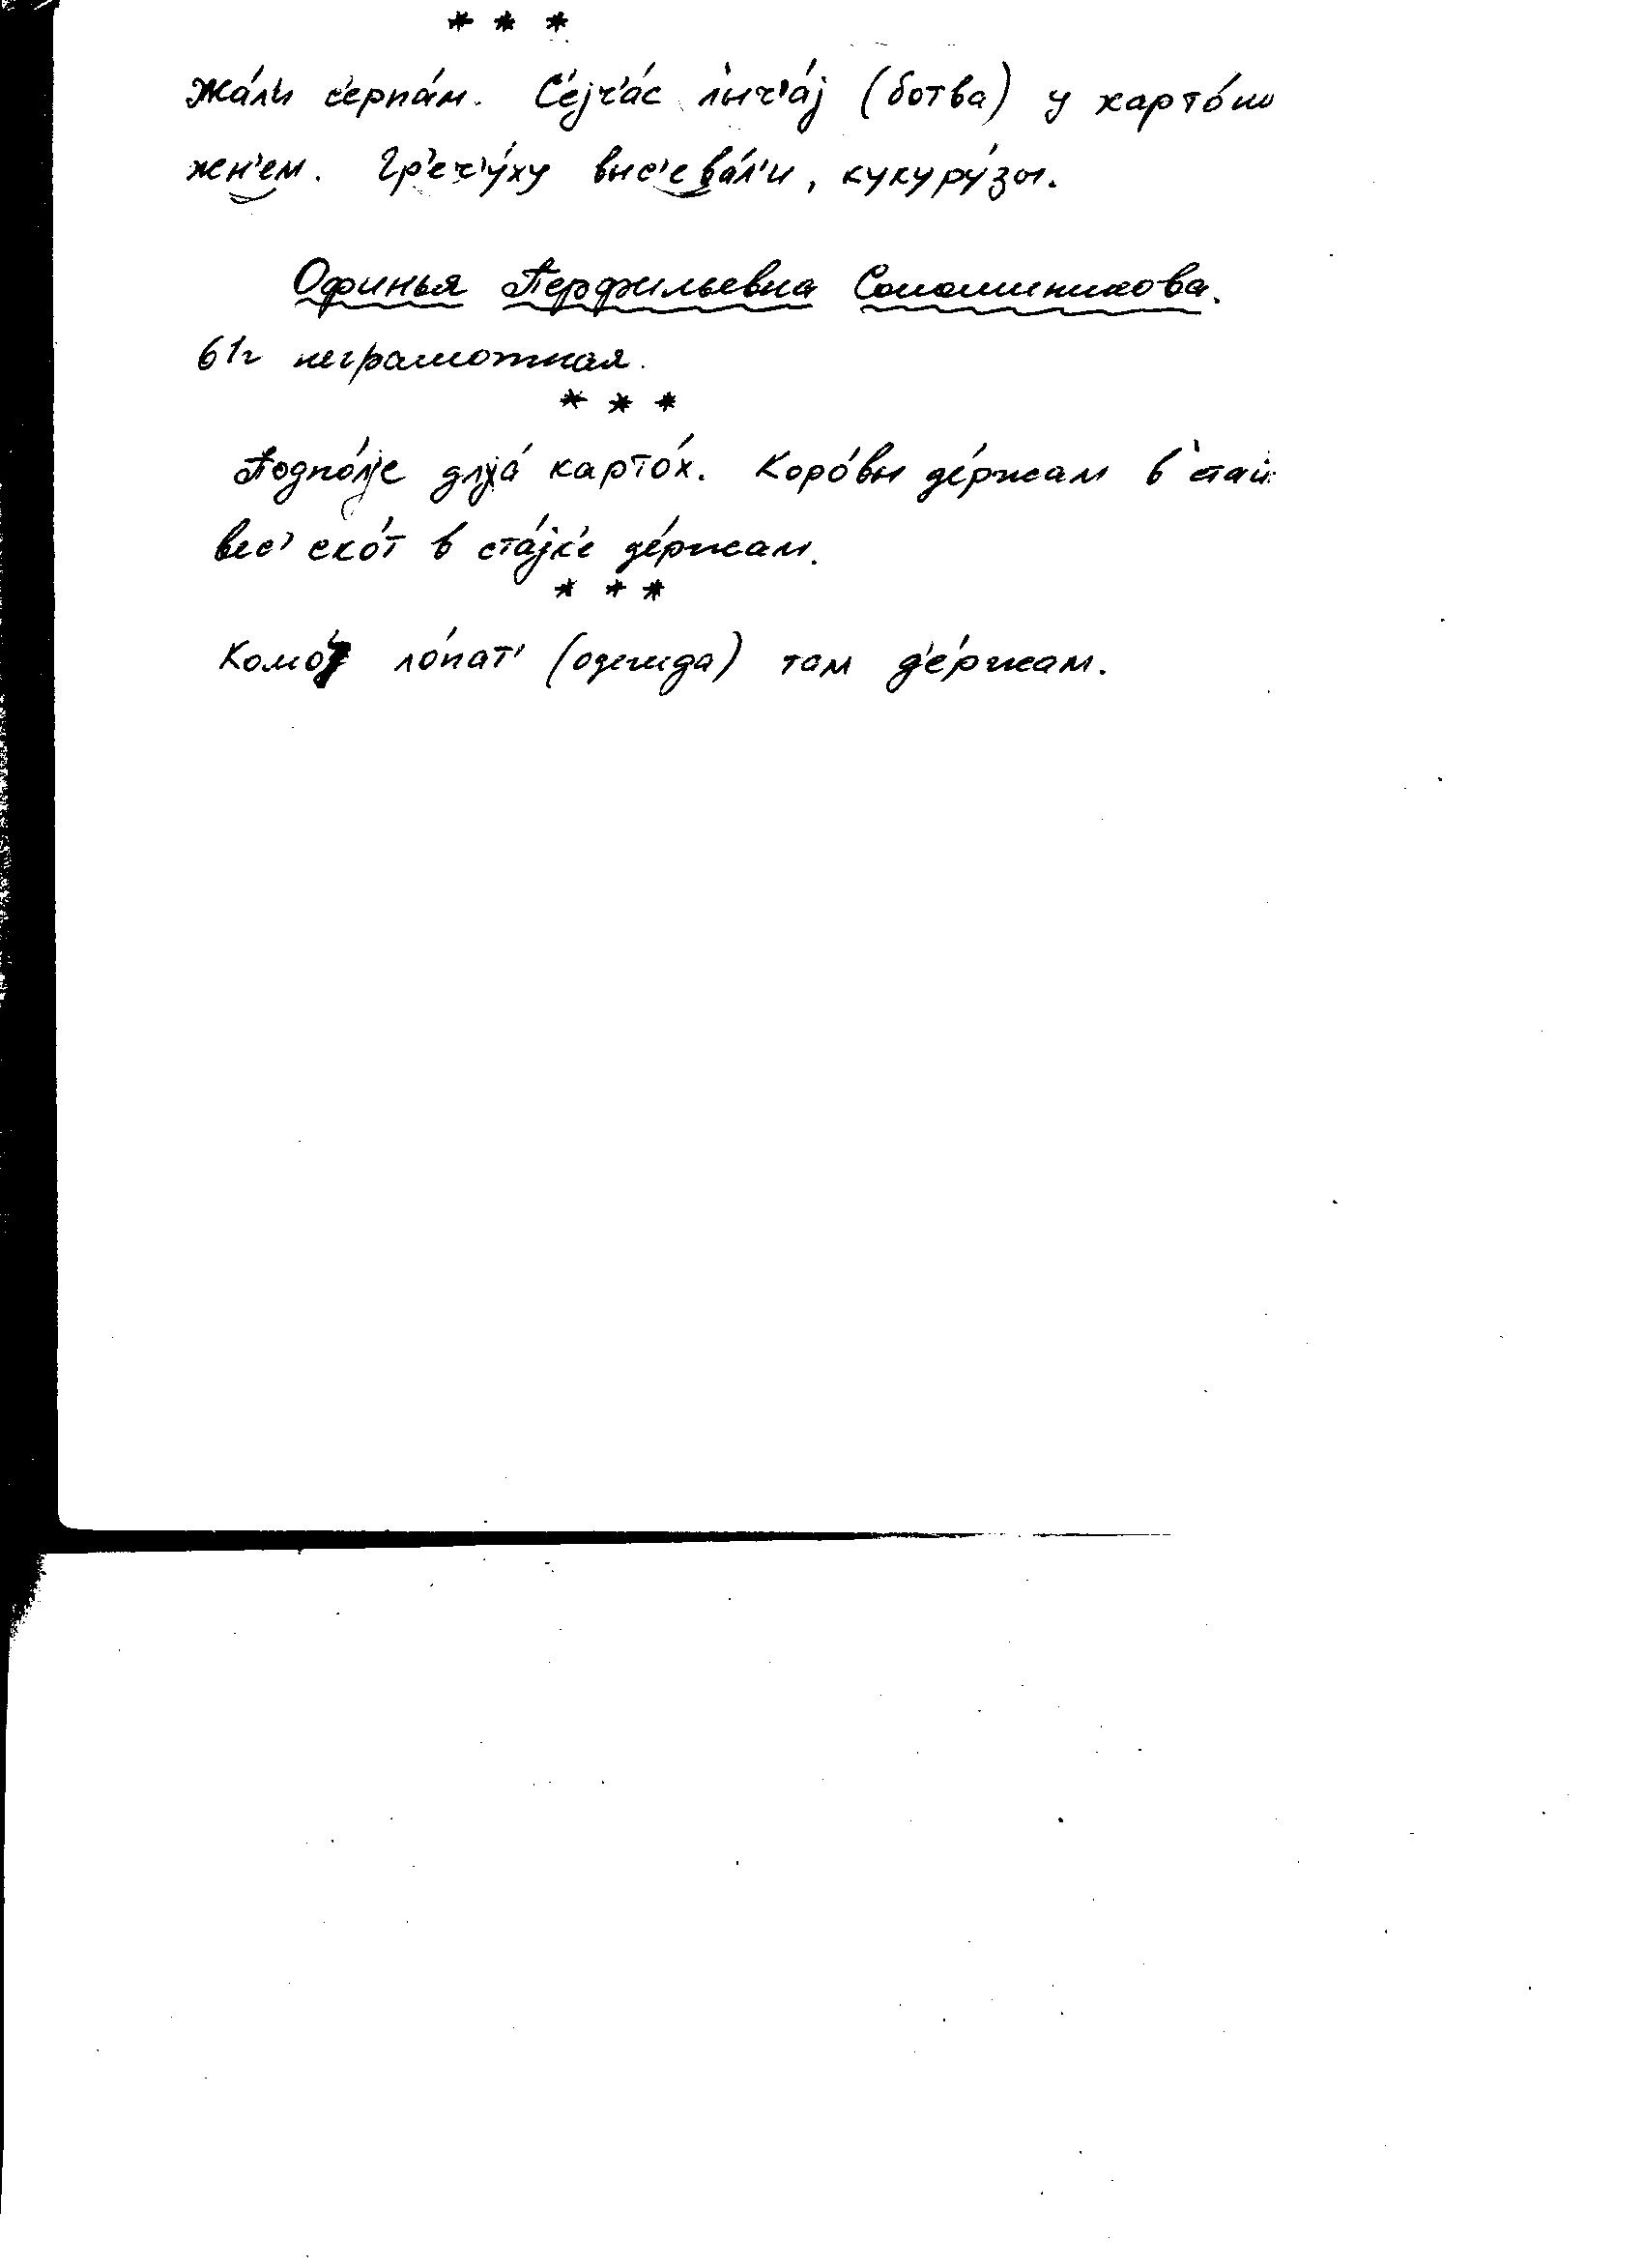 * * *
Жа́л'и с'ерпа́м. Се́jч'а́с лыч'а́j (ботва) у карто́ш
жн'ем. Гр'еч'у́ху выс'ева́л'и, кукуру́зы.
Офинья Перфильевна
61г неграмотная.
* * *
Подпо́лjе длjа́ карто́х. Коро́вы де́ржам в стай
вес' ско́т в ста́jк'е де́ржам.
* * *
Комо́д ло́пат' (одежда) там д'е́ржам.